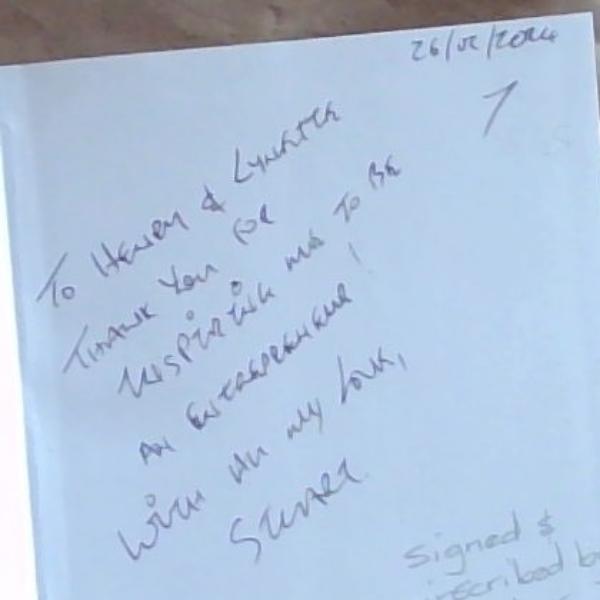 26/02/2024
To HENRY & LYNETTE
THANK YOU FOR
INSPIRING ME TO BE
AN ENTREPRENEUR!
WITH ALL MY LOVE,
STUART
Signed &
inscribed by